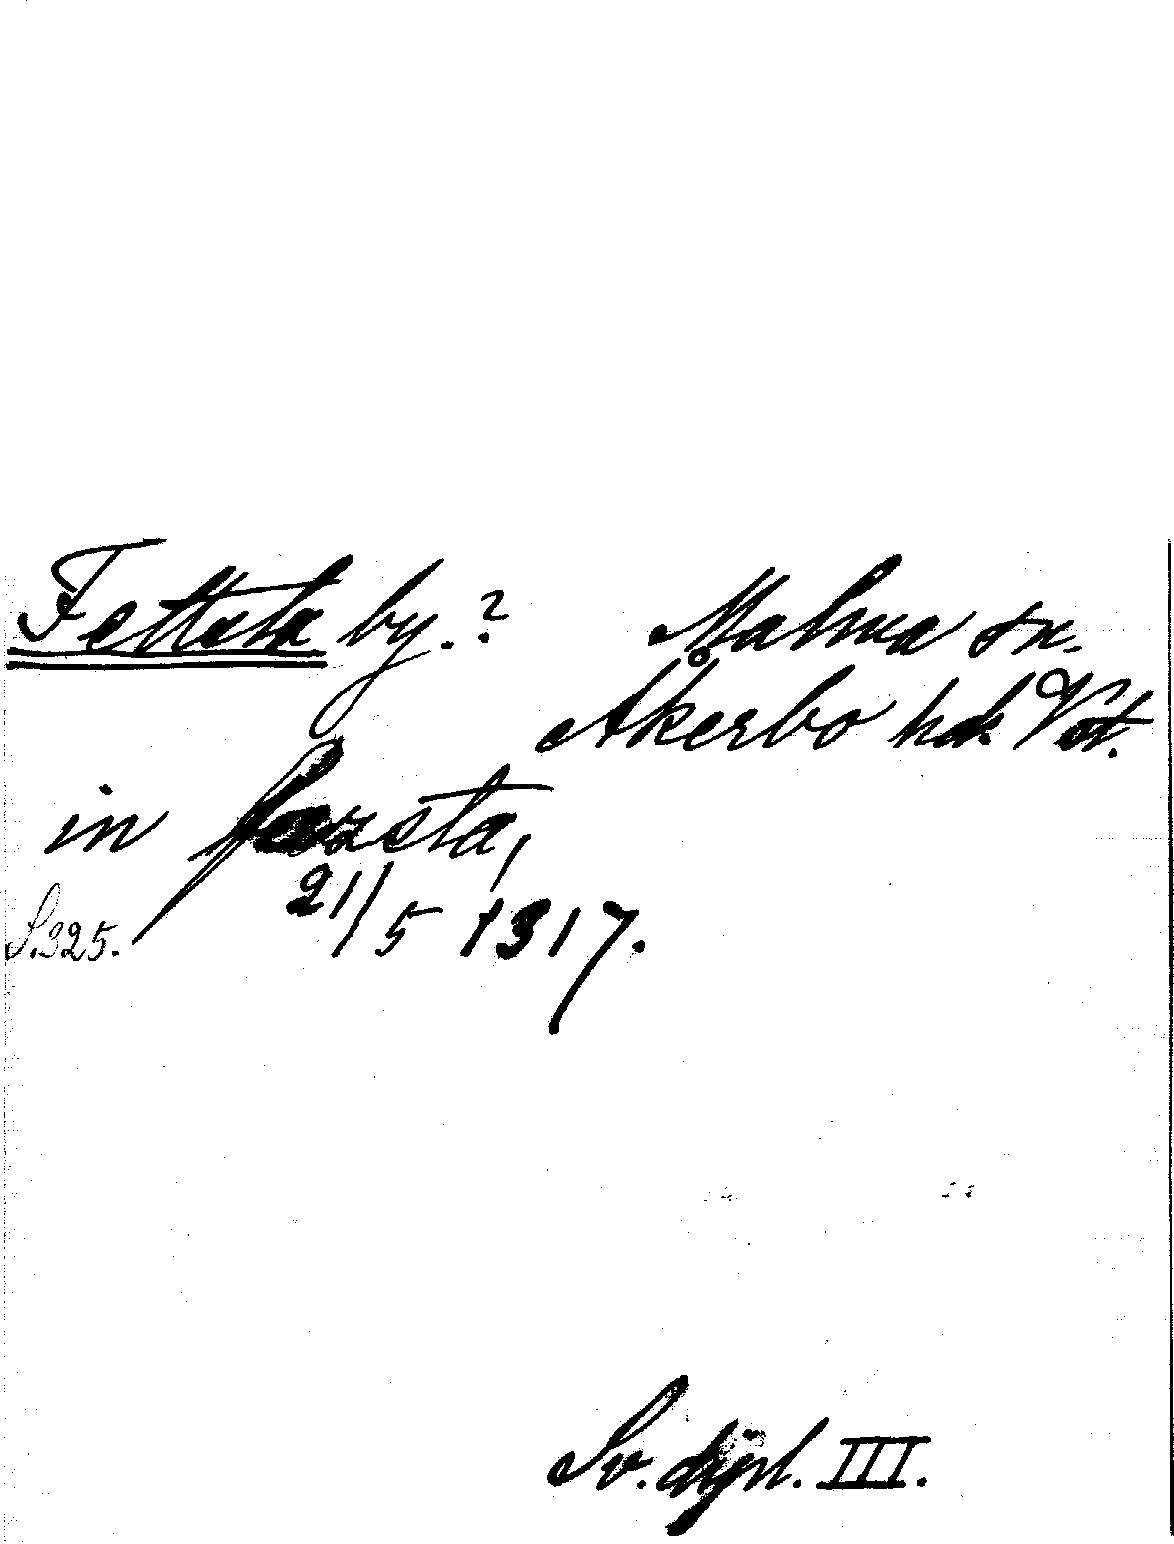 Fettsta by.? Malma sn.
Åkerbo hd. Vst.
in fæzsta,
21/5 1317.
S. 325.
Sv. dipl. III.